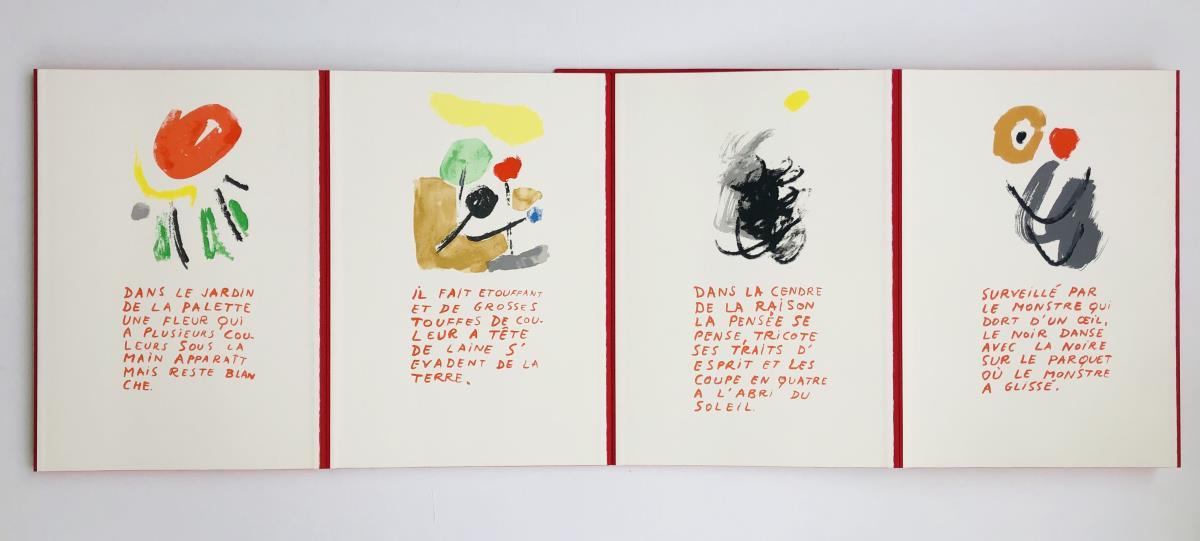 DANS LE JARDIN
DE LA PALETTE
UNE FLEUR QUI
A PLUSIEURS COU-
LEURS SOUS LA
MAIN APPARAÎT
MAIS RESTE BLAN
CHE.
IL FAIT ETOUFFANT
ET DE GROSSES
TOUFFES DE COU-
LEUR A TÊTE
DE LAINE S'
EVADENT DE LA
TERRE.
DANS LA CENDRE
DE LA RAISON
LA PENSÉE SE
PENSE, TRICOTE
SES TRAITS D'
ESPRIT ET LES
COUPE EN QUATRE
A L'ABRI DU
SOLEIL.
SURVEILLÉ PAR
LE MONSTRE QUI
DORT D'UN ŒIL,
LE NOIR DANSE
AVEC LA NOIRE
SUR LE PARQUET
OÙ LE MONSTRE
A GLISSÉ.